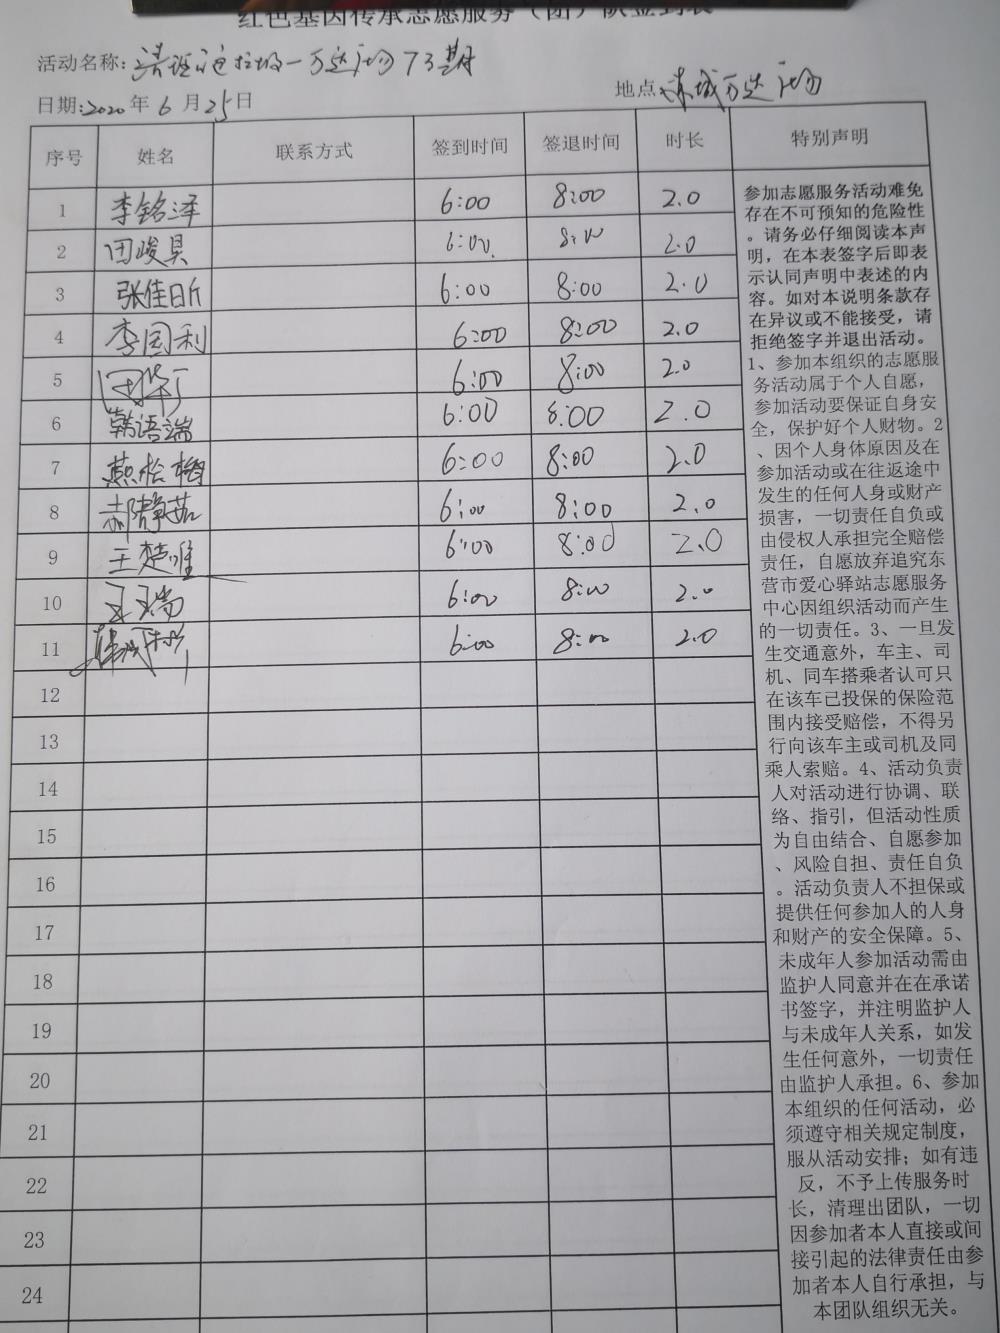 红色基因传承志愿服务（团）队签到表
活动名称: 万达广场73期
日期:2020年6月25日 地点: 东城万达广场
序号 姓名 联系方式 签到时间 签退时间 时长 特别声明
1 李铭泽 6:00 8:00 2.0
2 田峻昊 6:00 8:00 2.0
3 张佳昕 6:00 8:00 2.0
4 李国利 6:00 8:00 2.0
5 6:00 8:00 2.0
6 韩语端 6:00 8:00 2.0
7 燕松梅 6:00 8:00 2.0
8 郝静茹 6:00 8:00 2.0
9 王楚唯 6:00 8:00 2.0
10 王瑞 6:00 8:00 2.0
11 6:00 8:00 2.0
12
13
14
15
16
17
18
19
20
21
22
23
24
参加志愿服务活动难免
存在不可预知的危险性
。请务必仔细阅读本声
明，在本表签字后即表
示认同声明中表述的内
容。如对本说明条款存
在异议或不能接受，请
拒绝签字并退出活动。
1、参加本组织的志愿服
务活动属于个人自愿，
参加活动要保证自身安
全，保护好个人财物。2
、因个人身体原因及在
参加活动或在往返途中
发生的任何人身或财产
损害，一切责任自负或
由侵权人承担完全赔偿
责任，自愿放弃追究东
营市爱心驿站志愿服务
中心因组织活动而产生
的一切责任。3、一旦发
生交通意外，车主、司
机、同车搭乘者认可只
在该车已投保的保险范
围内接受赔偿，不得另
行向该车主或司机及同
乘人索赔。4、活动负责
人对活动进行协调、联
络、指引，但活动性质
为自由结合、自愿参加
、风险自担、责任自负
。活动负责人不担保或
提供任何参加人的人身
和财产的安全保障。5、
未成年人参加活动需由
监护人同意并在在承诺
书签字，并注明监护人
与未成年人关系，如发
生任何意外，一切责任
由监护人承担。6、参加
本组织的任何活动，必
须遵守相关规定制度，
服从活动安排；如有违
反，不予上传服务时
长，清理出团队，一切
因参加者本人直接或间
接引起的法律责任由参
加者本人自行承担，与
本团队组织无关。